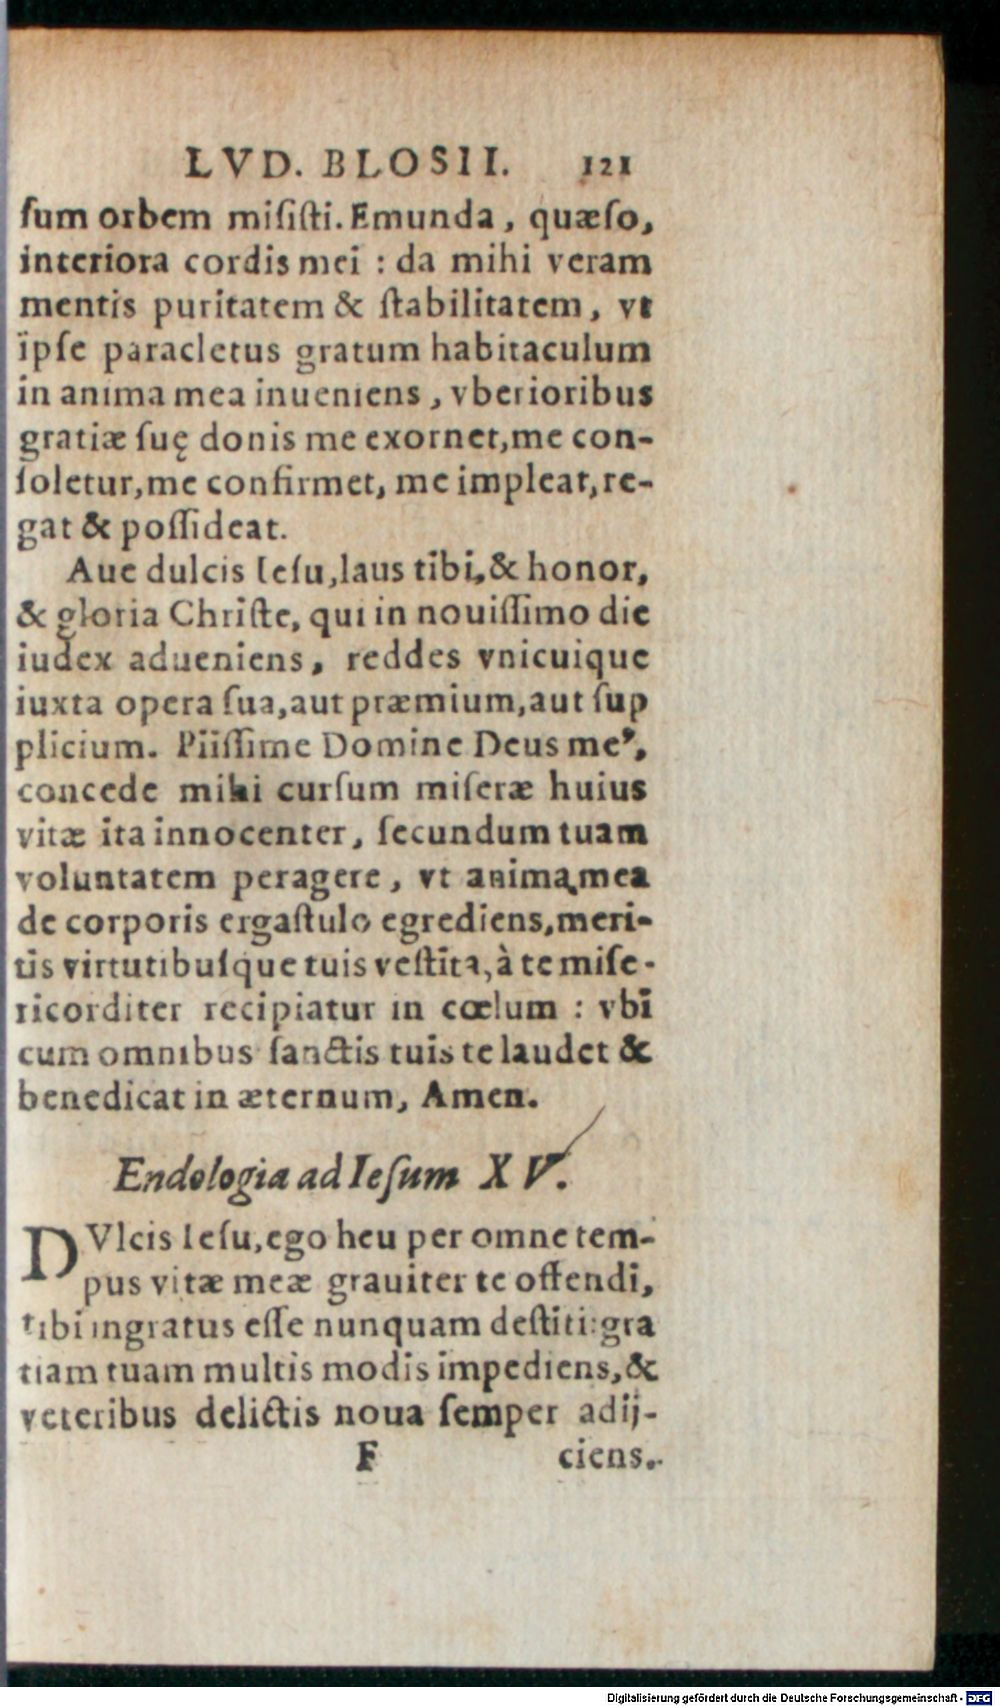 LVD. BLOSII. 121
ſum orbem miſiſti. Emunda, quæſo,
interiora cordis mei : da mihi veram
mentis puritatem & ſtabilitatem, vt
ipſe paracletus gratum habitaculum
in anima mea inueniens, vberioribus
gratiæ ſuę donis me exornet, me con-
ſoletur, me confirmet, me impleat, re-
gat & poſſideat.
Aue dulcis Ieſu, laus tibi, & honor,
& gloria Chriſte, qui in nouiſſimo die
iudex adueniens, reddes vnicuique
iuxta opera ſua, aut præmium, aut ſup
plicium. Piiſſime Domine Deus me⁹,
concede mihi curſum miſeræ huius
vitæ ita innocenter, ſecundum tuam
voluntatem peragere, vt anima mea
de corporis ergaſtulo egrediens, meri-
tis virtutibuſque tuis veſtita, à te miſe-
ricorditer recipiatur in cœlum : vbi
cum omnibus ſanctis tuis te laudet &
benedicat in æternum, Amen.
Endologia ad Ieſum XV.
DVlcis Ieſu, ego heu per omne tem-
pus vitæ meæ grauiter te offendi,
tibi ingratus eſſe nunquam deſtiti: gra
tiam tuam multis modis impediens, &
veteribus delictis noua ſemper adij-
F ciens.
Digitalisierung gefördert durch die Deutsche Forschungsgemeinschaft - DFG